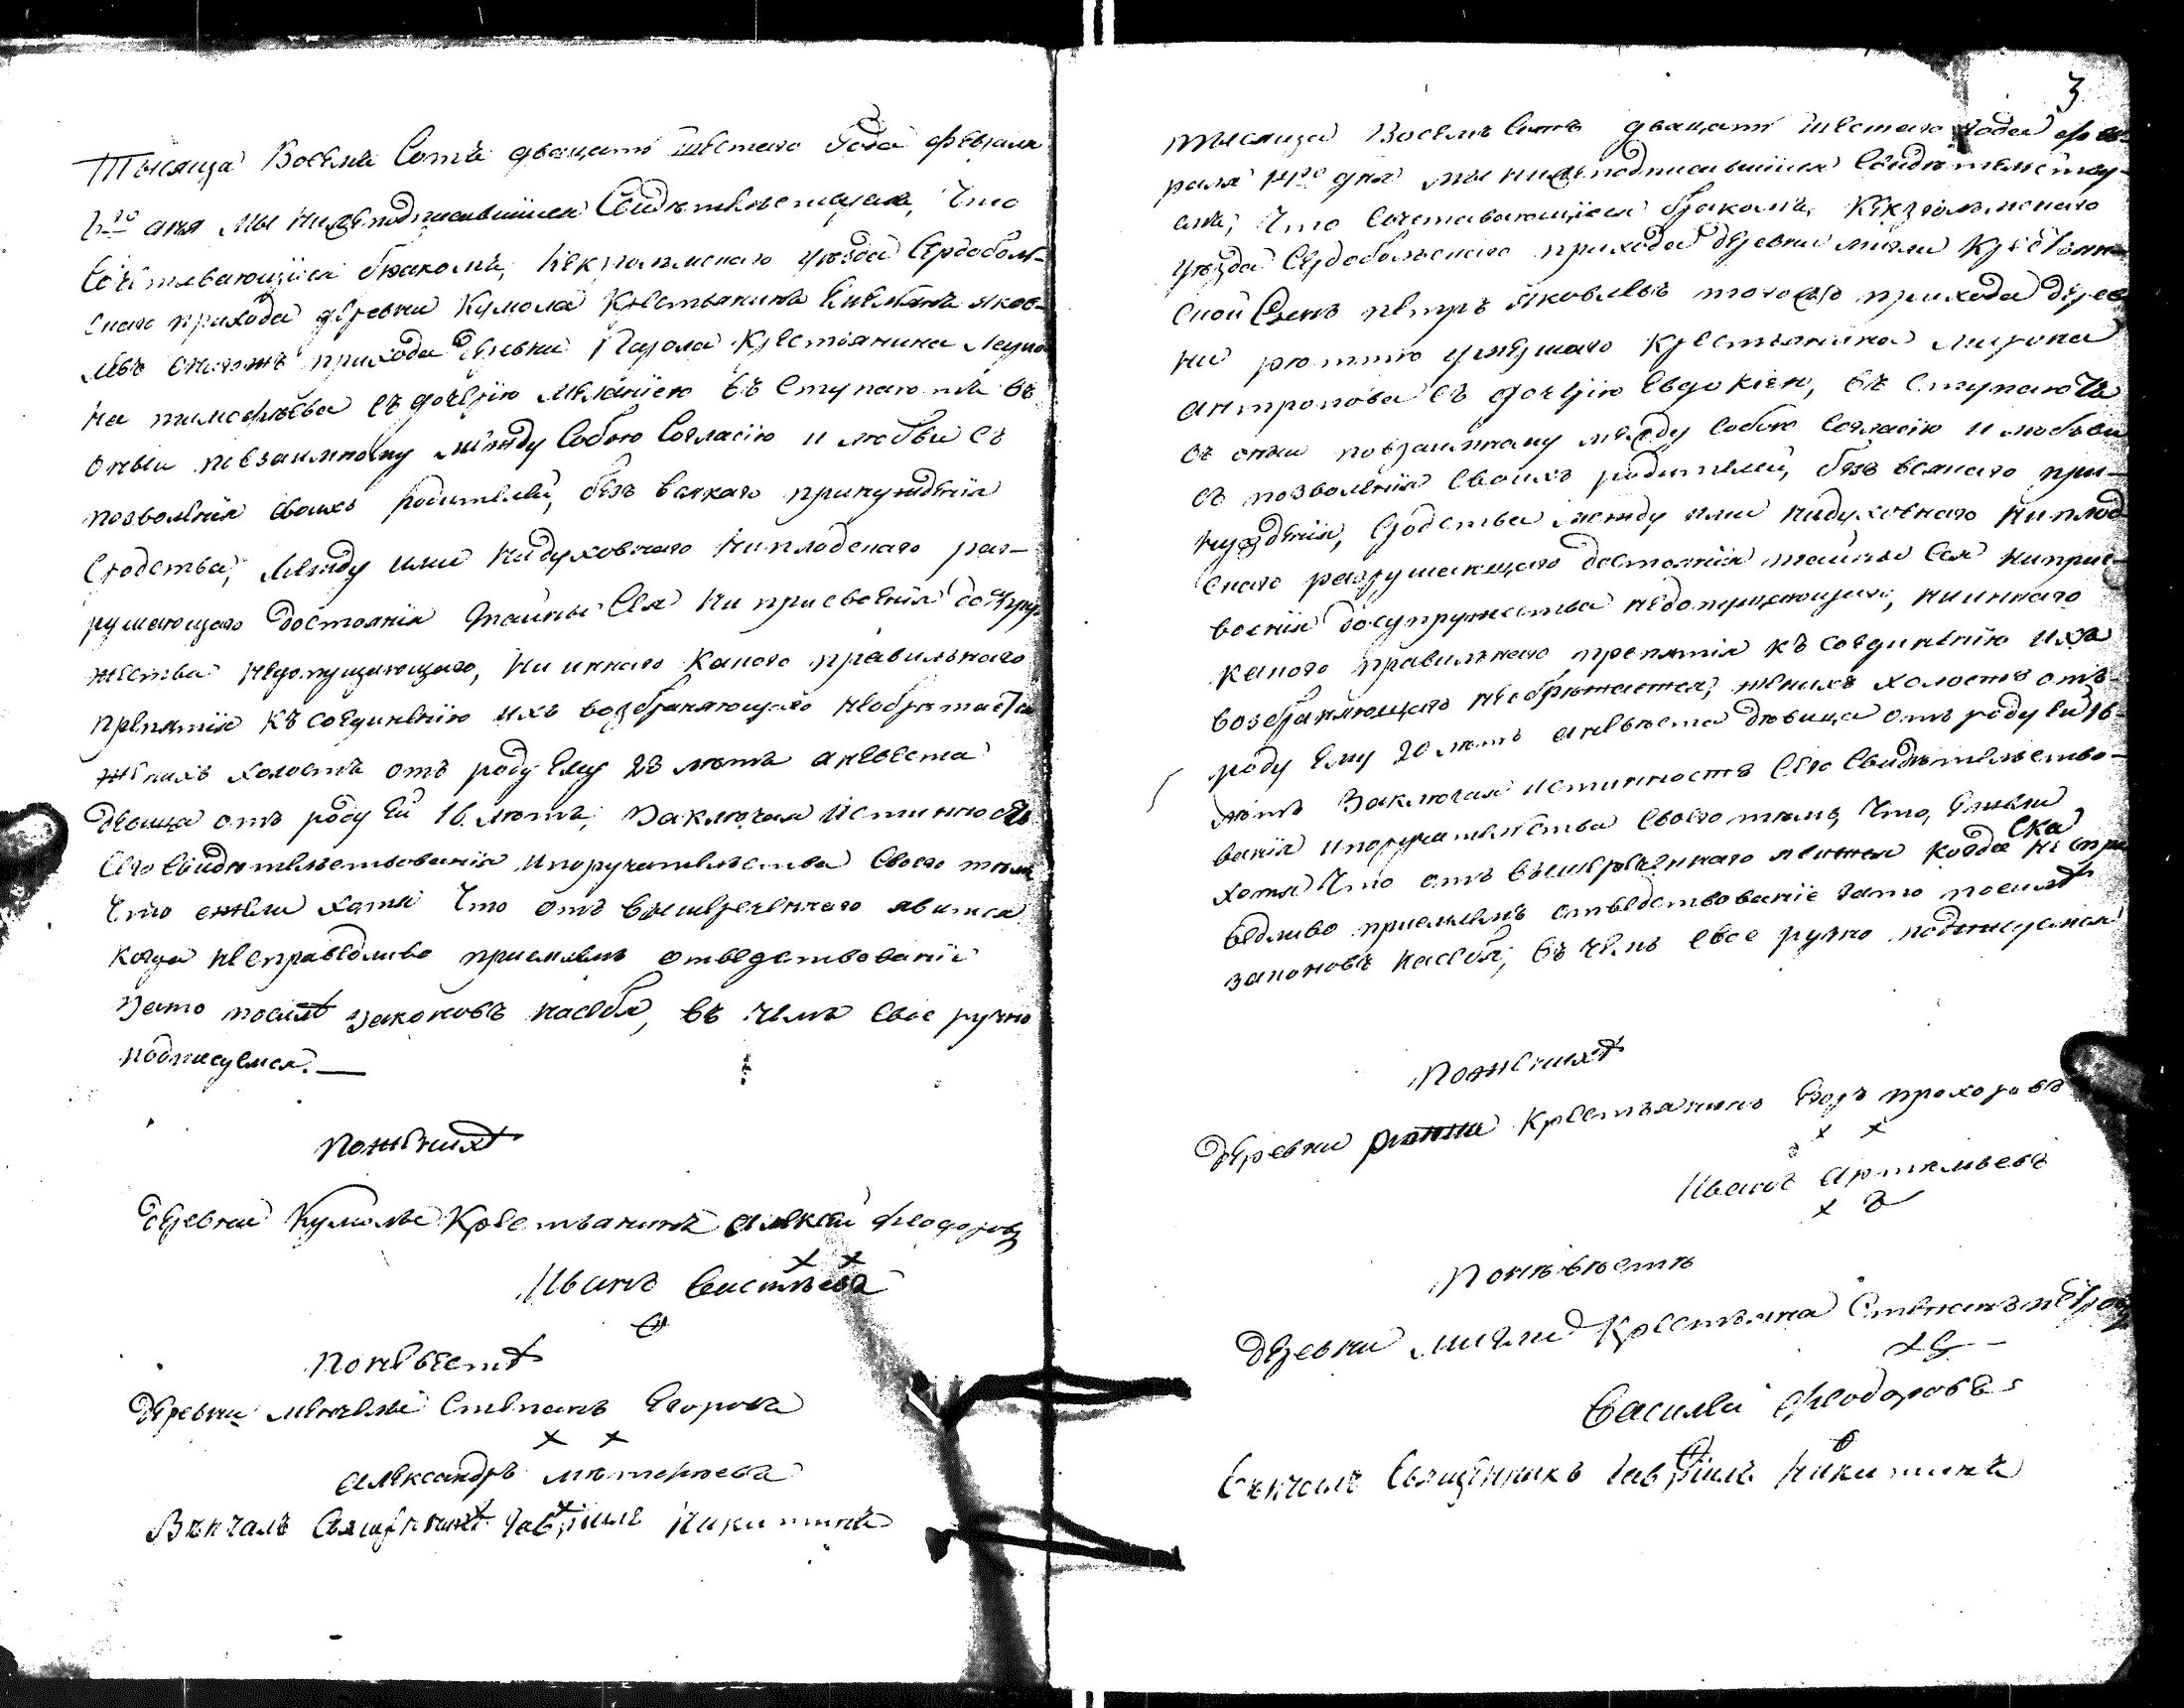 Тысяща Восемь Сотъ дватцать шестаго Года февраля
дня мы нижеподписавшiися Свидѣтельствуемъ, Что
Сочетавающiися бракомъ, Кекзголмскаго уѣзда Сердоболь-
скаго прихода деревни Кумола Крестьянинъ Емельянъ яков-
левъ онагожъ прихода деревни Крестьянина
на тимофѣева съ дочерiю меланiею въ Ступаютъ въ
оныи повзаимному между Собою Согласiю и любви съ
позволенiя своихъ родителей, безъ всякаго принужденiя
Сродства, между ими нидуховнаго ниплодскаго раз-
рушающаго достоянiя тайны Сея ни присвоенiя досупру-
жества недопущающаго, ни иннаго какого правильнаго
препятiя къ соединенiю ихъ возбраняющаго необрѣтается
женихъ холостъ отъ роду Ему 23 лѣтъ аневеста
девица отъ роду Ей 16 лѣтъ, Заключая Истинность
Сего Свидѣтельствованiя ипоручательства Своего тѣмъ
Что ежели хотя Что отъ вышеречѣннаго явится
когда несправедливо приемлемъ отведствованiе
зато посилѣ законовъ насебя, въ чемъ Свое ручно
подписуемся.
Поженихѣ
деревни Кумолы Крестьянинъ алексѣй феодоровъ
х х
Иванъ
Поневестѣ
деревни Степанъ Егоровъ
х х
александръ
Вѣнчалъ Священникъ Гаврiилъ Никитинъ
3
тысяща Восемь Сотъ дватцать шестаго Года фев-
раля 14го дня мы нижеподписавшiися Свидѣтельству-
емъ, Что Сочетавающiися бракомъ, Кекзголмскаго
уѣзда Сердобольскаго прихода деревни Крестьян-
ской Сынъ петръ яковлевъ тогожъ прихода дерев
ни умершаго Крестьянина мирона
антропова съ дочерiю Евдокiею, въ Ступаютъ
въ оныи повзаимному между собою согласiю и любви
съ позволенiя Своихъ родителей, безъ всякаго при-
нужденiя, Сродства между ими нидуховнаго ниплод
скаго разрушающаго достоянiя тайны Сея ниприс-
военiя досупружества недопущающаго, нииннаго
какого правильнаго препятiя къ соединенiю ихъ
возбраняющаго необрѣтается, женихъ холостъ отъ
роду Ему 20 лѣтъ аневѣста дѣвица отъ роду Ей 16
лѣтъ Заключая истинность Сего Свидѣтельство-
ванiя ипоручательства Своего тѣмъ, Что, Ежели
хотя Что отъ вышереченнаго когда неспра
ведливо приемлемъ отведствованiе зато посилѣ
законовъ насебя, въ чемъ свое ручно подписуемся
Поженихѣ
деревни Крестьянинъ Егоръ прохоровъ
х х
Иванъ артемьевъ
х
Поневѣстѣ
деревни Степанъ петровъ
Василей феодоровъ
Вѣнчалъ Священникъ Гаврiилъ Никитинъ